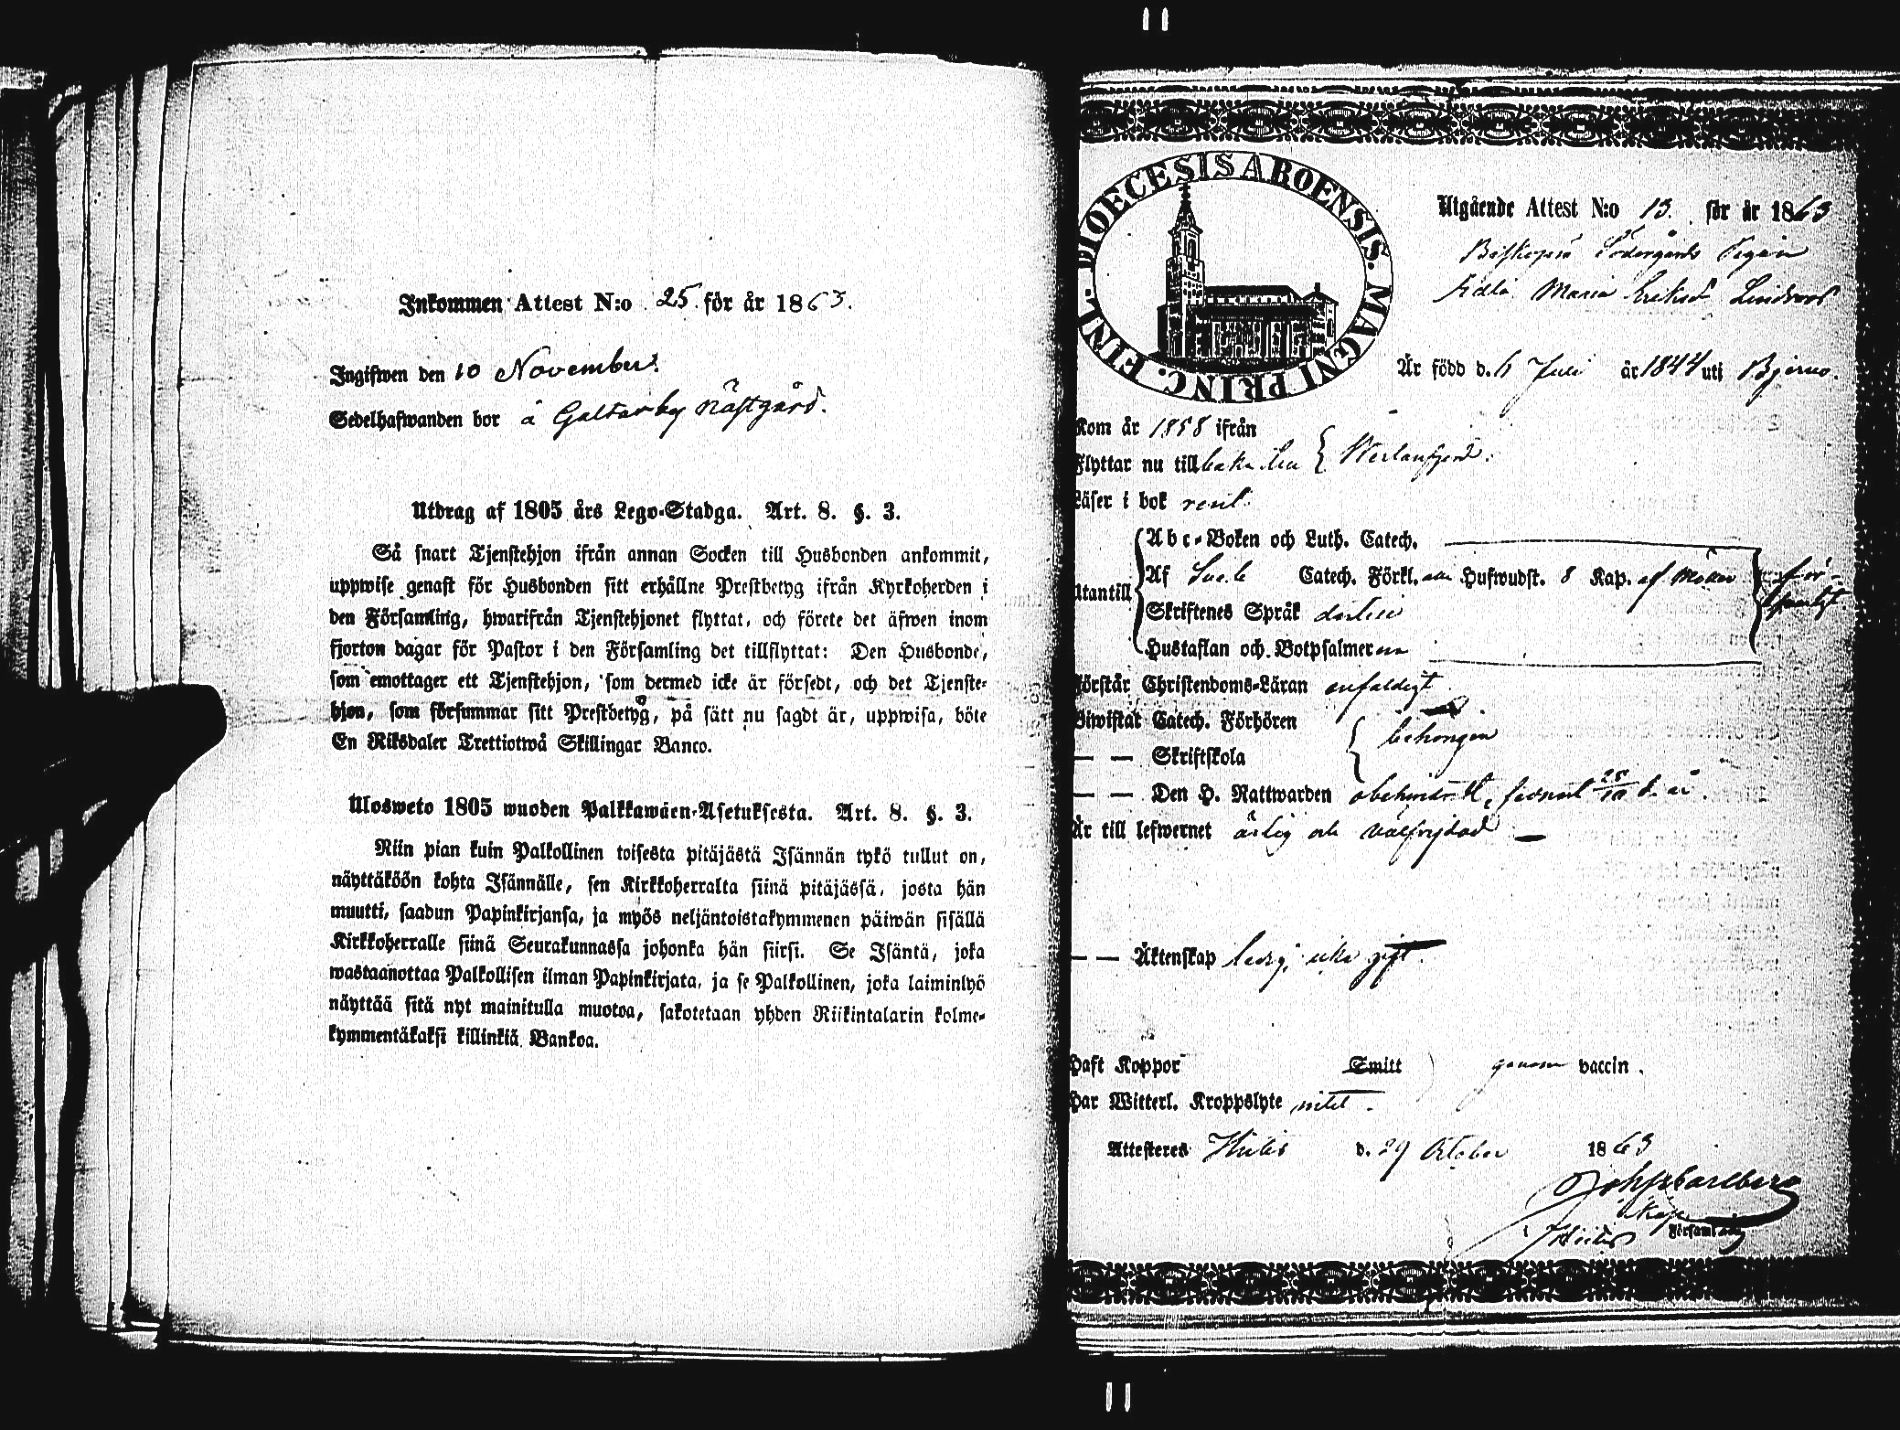 Inkommen Attest N:o 25 för år 1863.
Ingifwen den 10 November.
Sedelhafwanden bor å Galtarby Nästgård.
Utdrag af 1805 års Lego-Stadga. Art. 8. §. 3.
Så snart Tjenstehjon ifrån annan Socken till Husbonden ankommit,
uppwise genast för Husbonden sitt erhållne Prestbetyg ifrån Kyrkoherden i
den Församling, hwarifrån Tjenstehjonet flyttat, och förete det äfwen inom
fjorton dagar för Pastor i den Församling det tillflyttat: Den Husbonde,
som emottager ett Tjenstehjon, som dermed icke är försedt, och det Tjenste-
hjon, som försummar sitt Prestbetyg, på sätt nu sagdt är, uppwisa, böte
En Riksdaler Trettiotwå Skillingar Banco.
Ulosweto 1805 wuoden Palkkawäen-Asetuksesta. Art. 8. §. 3.
Niin pian kuin Palkollinen toisesta pitäjästä Isännän tykö tullut on,
näyttäköön kohta Isännälle, sen Kirkkoherralta siinä pitäjässä, josta hän
muutti, saadun Papinkirjansa, ja myös neljäntoistakymmenen päiwän sisällä
Kirkkoherralle siinä Seurakunnassa johonka hän siirsi. Se Isäntä, joka
wastaanottaa Palkollisen ilman Papinkirjata, ja se Palkollinen, joka laiminlyö
näyttää sitä nyt mainitulla muotoa, sakotetaan yhden Riikintalarin kolme-
kymmentäkaksi killinkiä Bankoa.
DIOECESIS ABOENSIS. MAGNI PRINC. FINL.
Utgående Attest N:o 13. för år 1863
Biskopsö Södergårds Pigan
Maria Eriksdr
Är född d. 6 Juli år 1844 uti Bjerno.
Kom år 1858 ifrån
Flyttar nu till baka till
Läser i bok rent
Utantill
Abc-Boken och Luth. Catech.
Af Catech. Förkl. Hufwudst. 8 Kap. af
Skriftenes Språk
Hustaflan och Botpsalmerna
Förstår Christendoms-Läran enfaldigt
Biwistat Catech. Förhören
— — Skriftskola
— — Den H. Nattwarden obehindradt, senast 25/10 d. å.
Är till lefwernet ärlig och välfrejdad
— — Äktenskap ledig, icke gift.
Haft Koppor Smitt genom vaccin.
Har Witterl. Kroppslyte intet.
Attesteras Hitis d. 29 October 1863
Kapl.
Hitis Församling